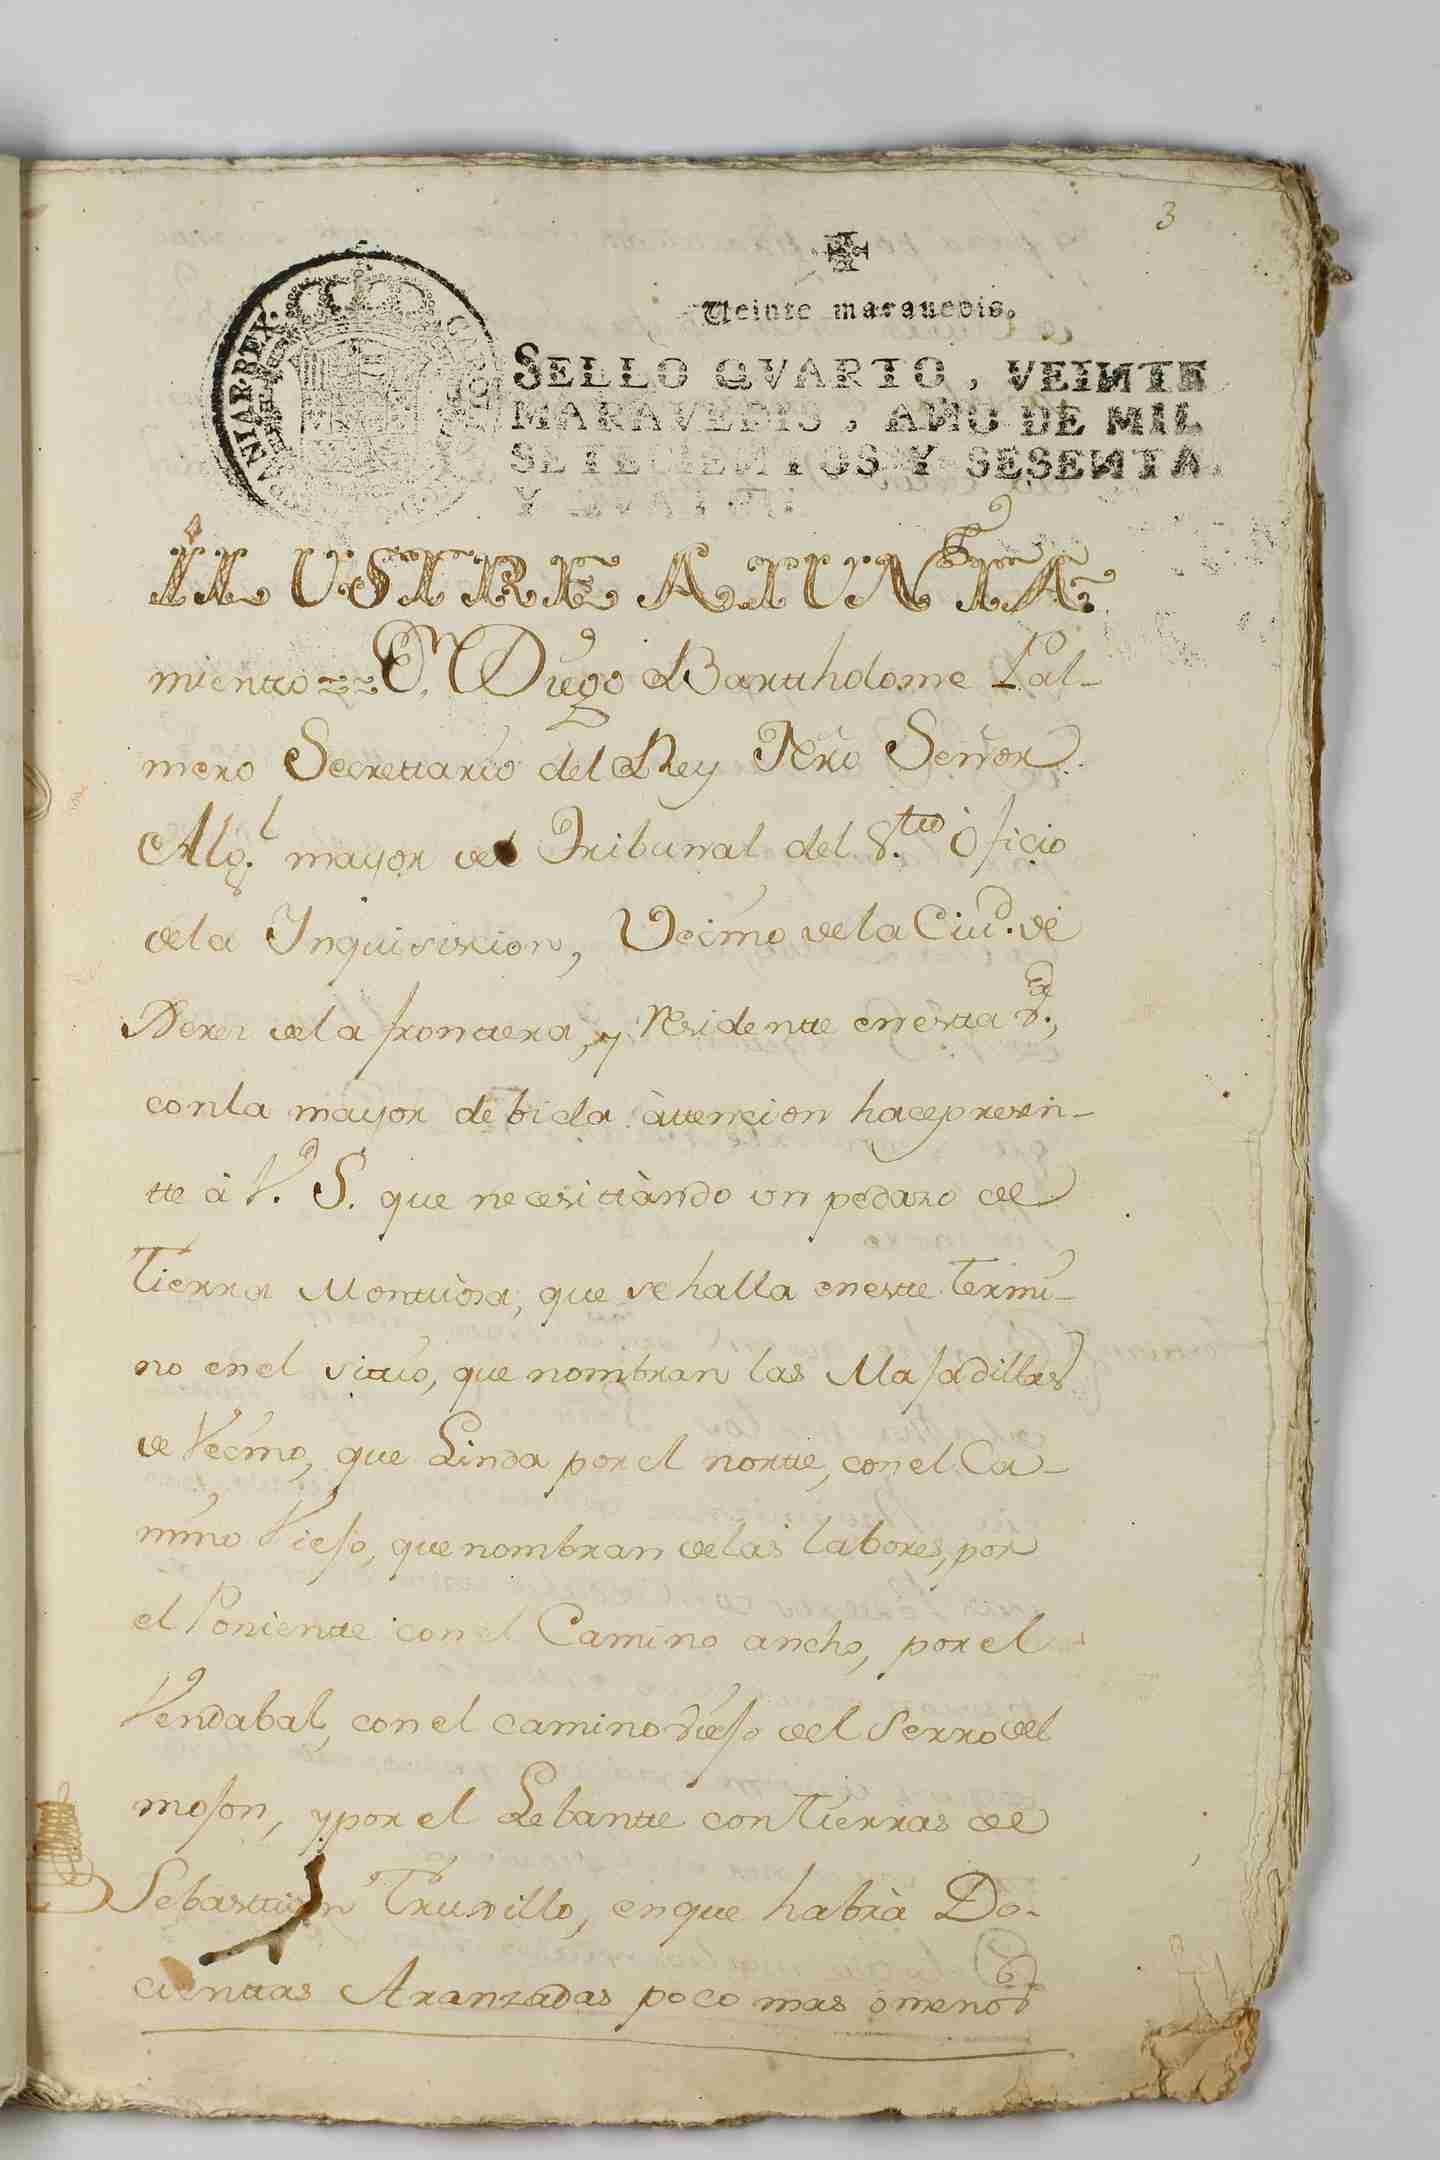 3
Veinte maravedis.
SELLO QVARTO, VEINTE
MARAVEDIS, AÑO DE MIL
SETECIENTOS Y SESENTA
Y QVATRO.
HISPANIAR.REX.
ILUSTRE AIUNTA
miento Dn. Diego Barthdome Pal-
mero Secrettario del Rey Nro Señor
Algl. mayor del Tribunal del S.tto Oficio
dela Inquisision, Vecino dela Ciud. de
Xerez dela frontera, y Residentte en estta
conla mayor debida àttencion hace presen-
tte à V. S. que necesittàndo un pedazo de
Tierra Monttuosa, que sehalla en estte Termi-
no en el sittio, que nombran las Majadillas
de Vecino, que Linda por el nortte, con el Ca-
mino Viejo, que nombran delas labores, por
el Ponientte con el Camino ancho, por el
Vendabal, con el camino Viejo del Serro del
mojon, y por el Lebantte con Tierras de
Sebasttian Truxillo, en que habrà Do-
cienttas Aranzadas poco mas ò menos